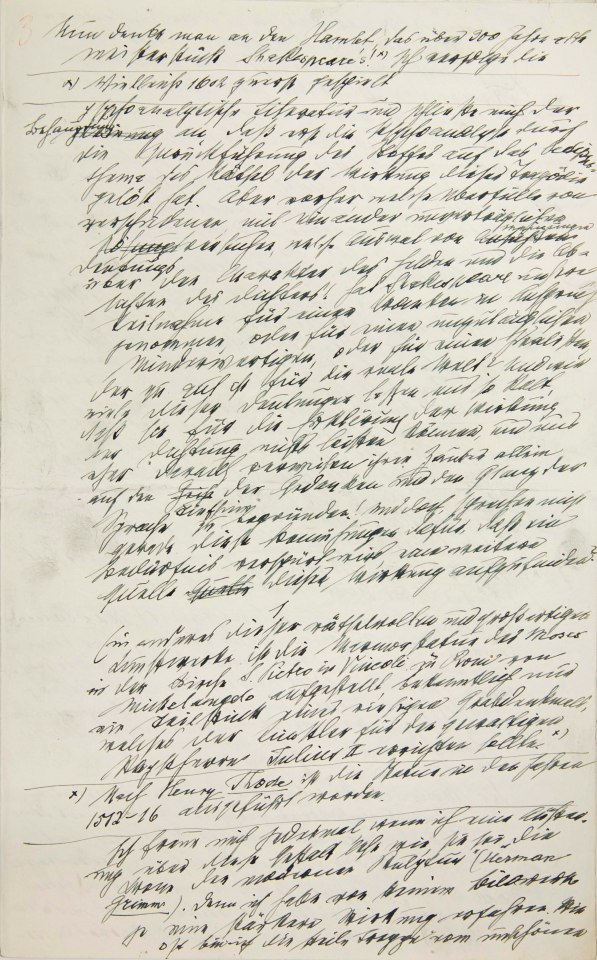 3
Nun denke man an den Hamlet, das über 300 Jahre alte
Meisterstück Shakespeare's! x) Ich verfolge die
x) Vielleicht 1602 zuerst gespielt
psychoanalytische Literatur und schließe mich der
Behauptung an, daß erst die Psychoanalyse durch
die Zurückführung des Stoffes auf das Oedipus-
thema das Rätsel der Wirkung dieser Tragödie
gelöst hat. Aber vorher welche Überfülle von
verschiedenen mit einander unverträglichen
Deutungs Lösungsversuchen, welche Auswal von Ansichten Meinungen
über den Charakter des Helden und die Ab-
sichten des Dichters! Hat Shakespeare unsere
Teilnahme für einen Kranken in Anspruch
genommen oder für einen unzulänglichen
Minderwertigen, oder für einen Idealisten
der zu gut ist für die reale Welt? Und wie
viele dieser Deutungen lassen uns so kalt,
daß sie für die Erklärung der Wirkung
der Dichtung nichts leisten können und uns
eher darauf verweisen ihren Zauber allein
auf den der Gedanken und den Glanz der
Sprache zu begründen! Und doch, sprechen nicht
gerade diese Bemühungen dafür, daß ein
Bedürfnis verspürt wird eine weitere
Quelle Quelle dieser Wirkung aufzufinden?
Ein anderes dieser rätselvollen und großartigen
Kunstwerke ist die Marmorstatue des Moses
in der Kirche S. Pietro in Vincoli zu Rom von
Michelangelo aufgestellt bekanntlich nur
ein Teilstück jenes riesigen Grabdenkmals,
welches der Künstler für den gewaltigen
Papstherrn Julius II errichten sollte. x)
x) Nach Henry Thode ist die Statue in den Jahren
1512–16 ausgeführt worden.
Ich freue mich jedesmal wenn ich eine Äußer-
ung über diese Gestalt lese wie, sie sei „die
Krone der modernen Skulptur“ (Herman
Grimm). Denn ich habe von keinem Bildwerk
je eine stärkere Wirkung erfahren. Wie
oft bin ich die steile Treppe vom unschönen